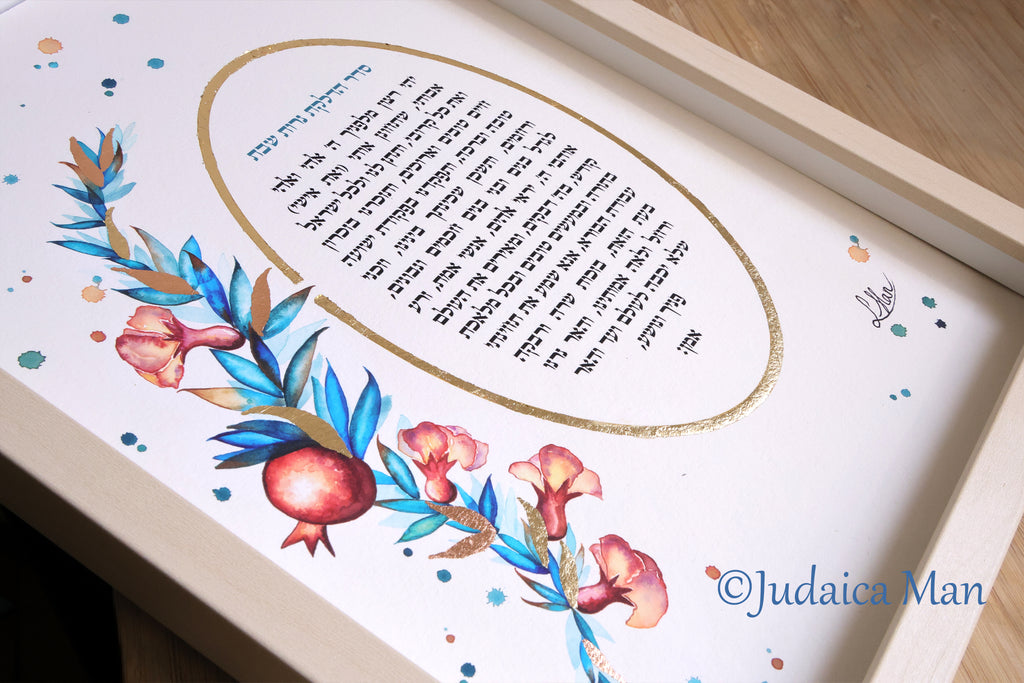 סדר הדלקת נרות שבת
יהי רצון מלפניך ה' אלקי ואלקי
אבותי, שתחונן אותי (ואת אישי)
ואת כל קרובי, ותתן לנו ולכל ישראל
חיים טובים וארוכים, ותזכרנו בזכרון
טובה וברכה, ותפקדנו בפקודת ישועה
ורחמים, ותשכן שכינתך בינינו, וזכנו
לגדל בנים ובני בנים חכמים ונבונים,
אוהבי ה', יראי אלהים, אנשי אמת, זרע
קודש, בה' דבקים, ומאירים את העולם
בתורה ובמעשים טובים ובכל מלאכת
עבודת הבורא, אנא שמע את תחינתי
בעת הזאת, בזכות שרה ורבקה
ורחל ולאה אמותינו, והאר נרנו
שלא יכבה לעולם ועד והאר
פניך ונושעה,
אמן:
©Judaica Man